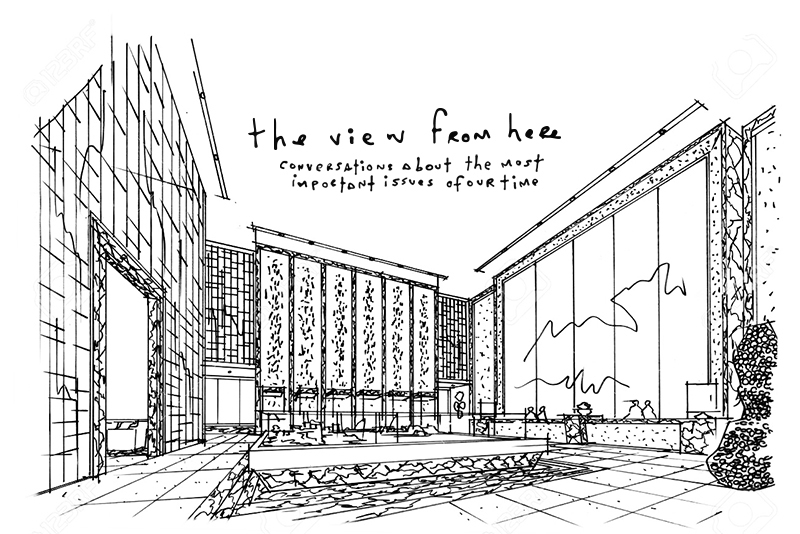 the view from here
conversations about the most
important issues of our time